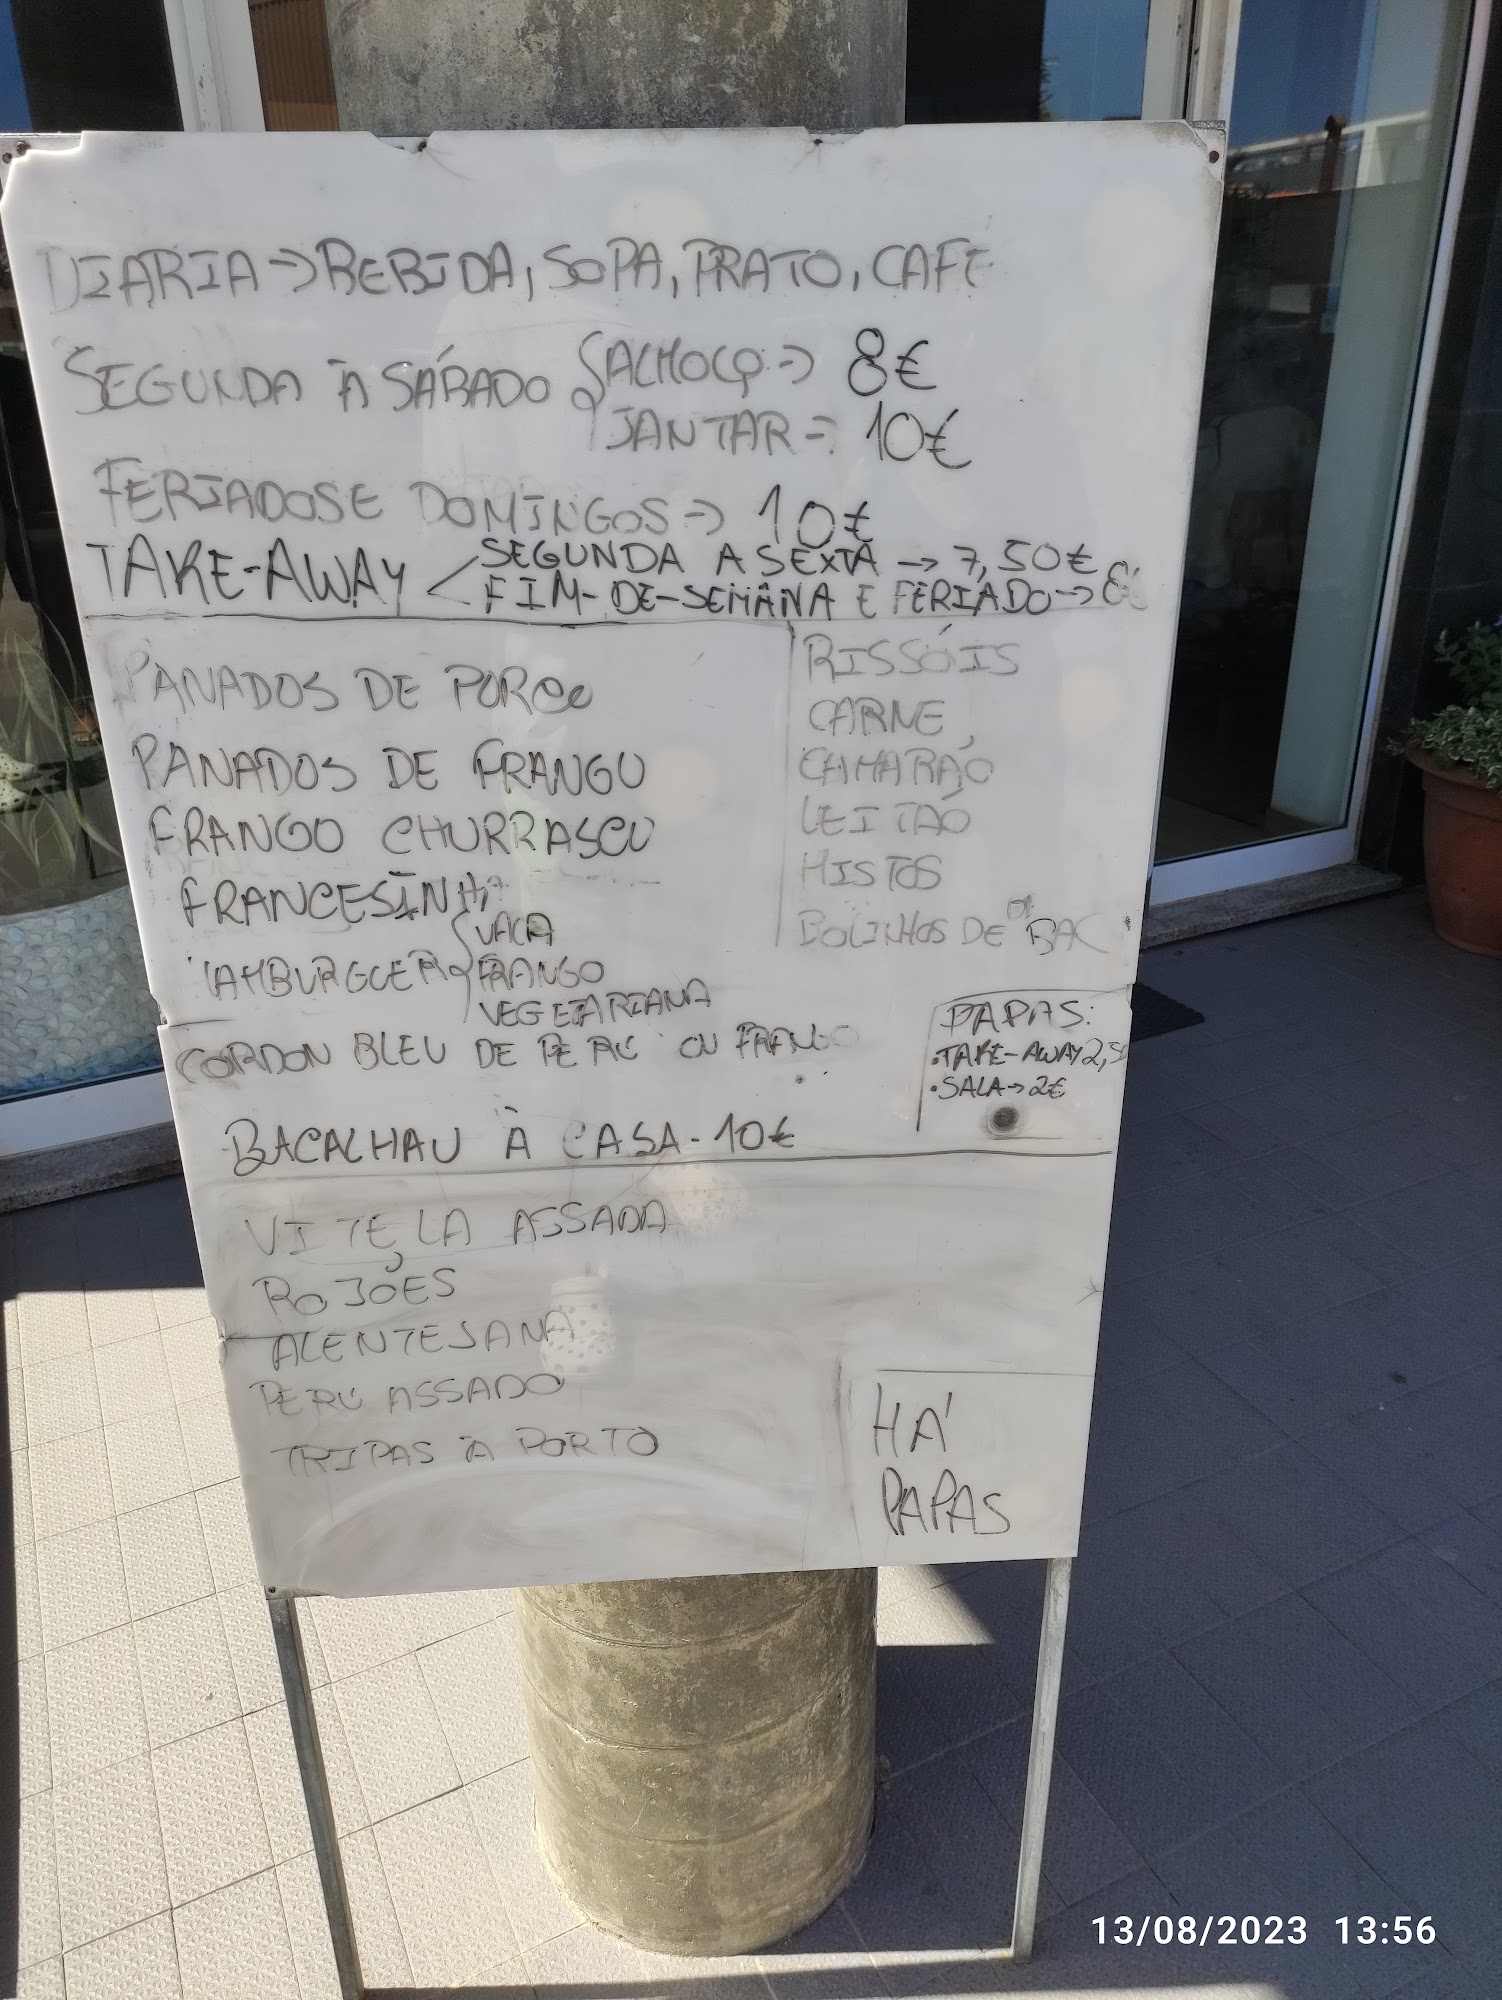 DIARIA → BEBIDA, SOPA, PRATO, CAFE
SEGUNDA À SÁBADO { ALMOÇO → 8€
JANTAR → 10€
FERIADOS E DOMINGOS → 10€
TAKE-AWAY < SEGUNDA A SEXTA → 7,50€
FIM-DE-SEMANA E FERIADO → 8€
PANADOS DE PORCO
PANADOS DE FRANGO
FRANGO CHURRASCO
FRANCESINHA
HAMBURGUER { VACA
FRANGO
VEGETARIANA
CORDON BLEU DE PERU OU FRANGO
BACALHAU À CASA - 10€
RISSÓIS
CARNE,
CAMARÃO
LEITÃO
MISTOS
BOLINHOS DE BAC
PAPAS:
• TAKE-AWAY 2,50
• SALA → 2€
VITELA ASSADA
ROJÕES
ALENTEJANA
PERU ASSADO
TRIPAS À PORTO
HÁ
PAPAS
13/08/2023 13:56